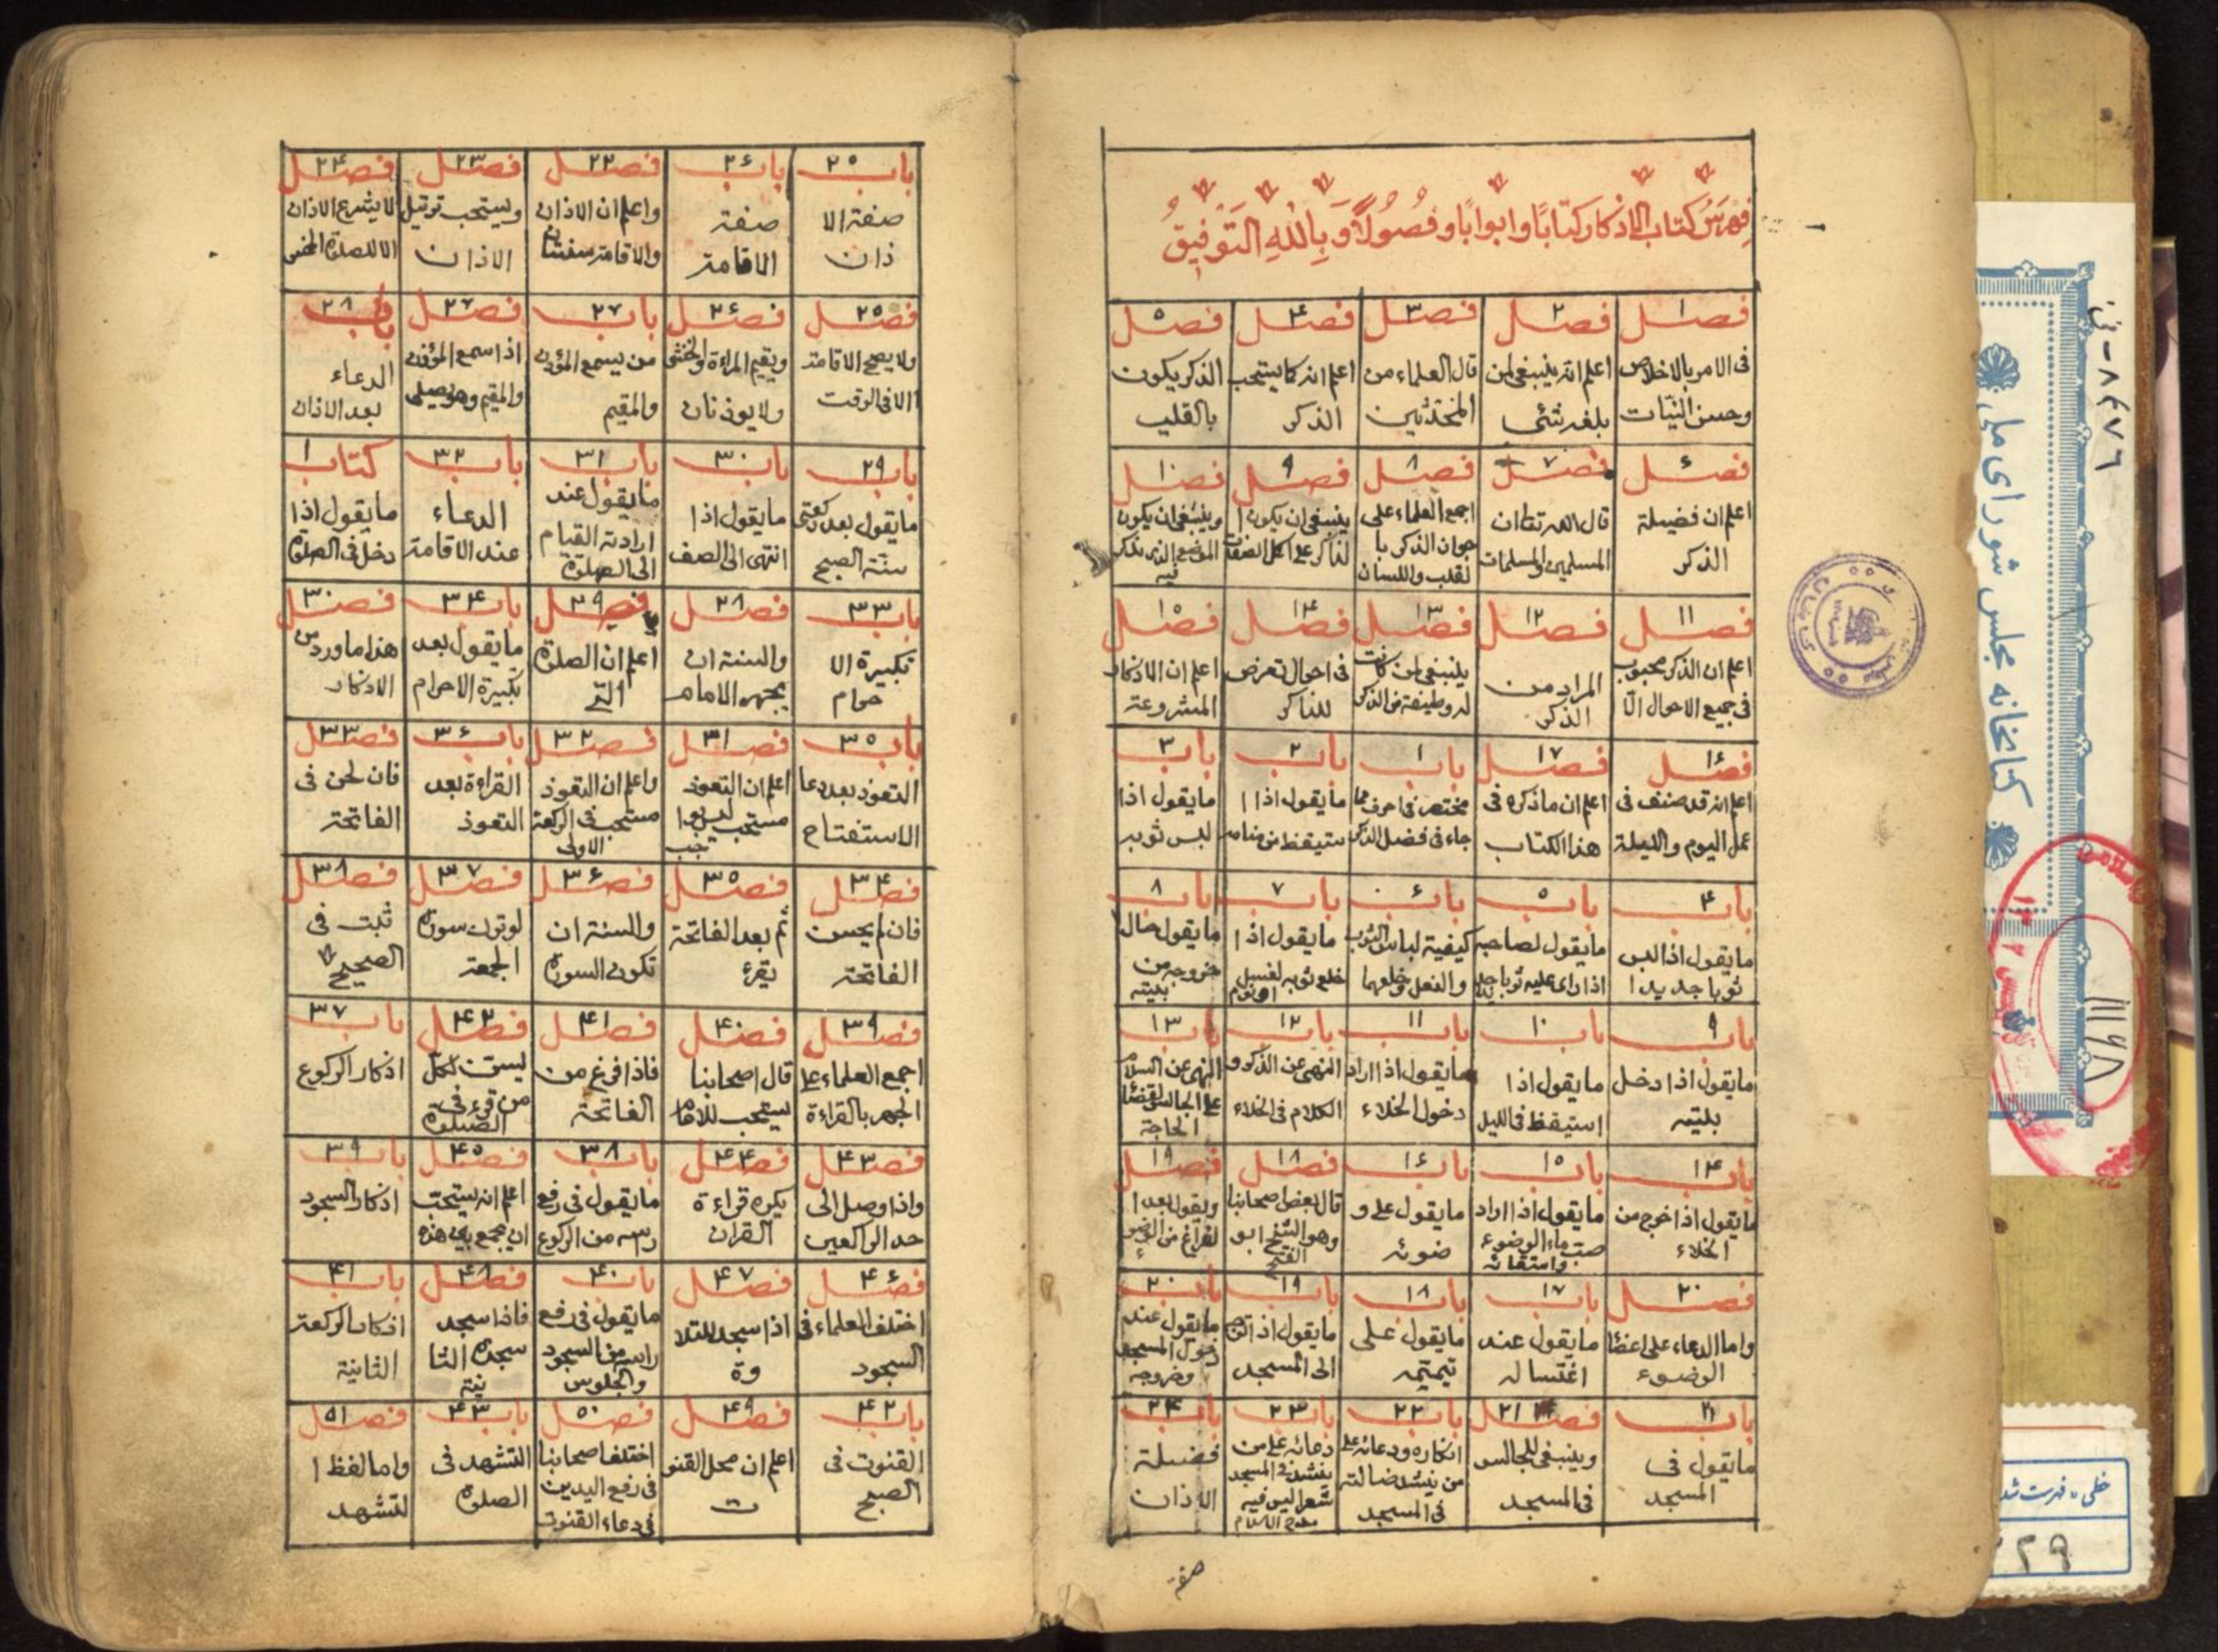 فهرس كتاب الاذكار كتابا وابوابا وفصولا وبالله التوفيق
فصل ١
فى الامر بالاخلاص
وحسن النيات
فصل ٢
اعلم انه ينبغى لمن
بلغه شئ
فصل ٣
قال العلماء من
المحدثين
فصل ۴
اعلم انه كما يستحب
الذكر
فصل ۵
الذكر يكون
بالقلب
فصل ۶
اعلم ان فضيلة
الذكر
فصل ٧
قال الله تعا ان
المسلمين والمسلمات
فصل ٨
اجمع العلماء على
جوان الذكر با
لقلب واللسان
فصل ٩
ينبغى ان يكون ا
لذاكر على اكمل الصفات
فصل ١٠
وينبغى ان يكون
الموضع الذى يذكر
فيه
فصل ١١
اعلم ان الذكر محبوب
فى جميع الاحوال الا
فصل ١٢
المراد من
الذكر
فصل ١٣
ينبغى لمن كانت
له وظيفة من الذكر
فصل ١۴
فى احوال تعرض
للذاكر
فصل ١۵
اعلم ان الاذكار
المشروعة
فصل ١۶
اعلم انه قد صنف فى
عمل اليوم والليلة
فصل ١٧
اعلم ان ماذكره فى
هذا الكتاب
باب ١
مختصر فى احرف مما
جاء فى فضل الذكر
باب ٢
مايقول اذا ا
ستيقظ من منامه
باب ٣
مايقول اذا
لبس ثوبه
باب ۴
مايقول اذا لبس
ثوبا جديدا
باب ۵
مايقول لصاحبه
اذا راى عليه ثوبا جديدا
باب ۶
كيفية لباس الثوب
والنعل وخلعهما
باب ٧
مايقول اذا
خلع ثوبه لغسل
او نوم
باب ٨
مايقول حال
خروجه من
بيته
باب ٩
مايقول اذا دخل
بيته
باب ١٠
مايقول اذا
استيقظ فى الليل
باب ١١
مايقول اذا اراد
دخول الخلاء
باب ١٢
النهى عن الذكر و
الكلام فى الخلاء
باب ١٣
النهى عن السلام
على الجالس لقضاء
الحاجة
باب ١۴
مايقول اذا خرج من
الخلاء
باب ١۵
مايقول اذا اراد
صب ماء الوضوء
واستقائه
باب ١۶
مايقول على و
ضوئه
فصل ١٨
قال بعض اصحابنا
وهو الشيخ ابو
الفتح
فصل ١٩
ويقول بعد ا
لفراغ من الوضو
ء
فصل ٢٠
واما الدعاء على اعضا
الوضوء
باب ١٧
مايقول عند
اغتساله
باب ١٨
مايقول على
تيممه
باب ١٩
مايقول اذا توجه
الى المسجد
باب ٢٠
مايقول عند
دخول المسجد
وخروجه
باب ٢١
مايقول فى
المسجد
فصل ٢١
وينبغى للجالس
فى المسجد
باب ٢٢
انكاره ودعائه على
من ينشد ضالته
فى المسجد
باب ٢٣
دعائه على من
ينشد فى المسجد
شعرا ليس فيه
مدح الاسلام
باب ٢۴
فضيلة
الاذان
صفة
باب ٢۵
صفة الا
ذان
باب ٢۶
صفة
الاقامة
فصل ٢٢
واعلم ان الاذان
والاقامة سنتان
فصل ٢٣
ويستحب ترتيل
الاذان
فصل ٢۴
لا يشرع الاذان
الا للصلوة الخمس
فصل ٢۵
ولا يصح الاقامة
الا فى الوقت
فصل ٢۶
ويقيم المراة والخنثى
ولا يوذنان
باب ٢٧
من يسمع المؤذن
والمقيم
فصل ٢٧
اذا سمع المؤذن
والمقيم وهو يصلى
باب ٢٨
الدعاء
بعد الاذان
باب ٢٩
مايقول بعد ركعتى
سنة الصبح
باب ٣٠
مايقول اذا
انتهى الى الصف
باب ٣١
مايقول عند
ارادته القيام
الى الصلوة
باب ٣٢
الدعاء
عند الاقامة
كتاب ١
مايقول اذا
دخل فى الصلوة
باب ٣٣
تكبيرة الا
حرام
فصل ٢٨
والسنة ان
يجهر الامام
فصل ٢٩
اعلم ان الصلوة
التى
باب ٣۴
مايقول بعد
تكبيرة الاحرام
فصل ٣٠
هذا ماورد من
الاذكار
باب ٣۵
التعوذ بعد دعا
الاستفتاح
فصل ٣١
اعلم ان التعوذ
مستحب ليس بوا
جب
فصل ٣٢
واعلم ان التعوذ
مستحب فى الركعة
الاولى
باب ٣۶
القراءة بعد
التعوذ
فصل ٣٣
فان لحن فى
الفاتحة
فصل ٣۴
فان لم يحسن
الفاتحة
فصل ٣۵
ثم بعد الفاتحة
يقرء
فصل ٣۶
والسنة ان
تكون السورة
فصل ٣٧
لو ترك سورة
الجمعة
فصل ٣٨
ثبت فى
الصحيح
فصل ٣٩
اجمع العلماء على
الجهر بالقراءة
فصل ۴٠
قال اصحابنا
يستحب للامام
فصل ۴١
فاذا فرغ من
الفاتحة
فصل ۴٢
ليسن لكل
من قرء فى
الصلوة
باب ٣٧
اذكار الركوع
فصل ۴٣
واذا وصل الى
حد الراكعين
فصل ۴۴
يكره قراءة
القران
باب ٣٨
مايقول فى رفع
رسه من الركوع
فصل ۴۵
اعلم انه يستحب
ان يجمع بين هذه
باب ٣٩
اذكار السجود
فصل ۴۶
اختلف العلماء فى
السجود
فصل ۴٧
اذا سجد للتلا
وة
باب ۴٠
مايقول فى رفع
راسه من السجود
والجلوس
فصل ۴٨
فاذا سجد
سجدة الثا
نية
باب ۴١
اذكار الركعة
الثانية
باب ۴٢
القنوت فى
الصبح
فصل ۴٩
اعلم ان محل القنو
ت
فصل ۵٠
اختلف اصحابنا
فى رفع اليدين
فى دعاء القنوت
باب ۴٣
التشهد فى
الصلوة
فصل ۵١
واما لفظ ا
لتشهد
٨٤٧٦
كتابخانه مجلس شوراى ملى
١١١٩٨
خطى - فهرست شده